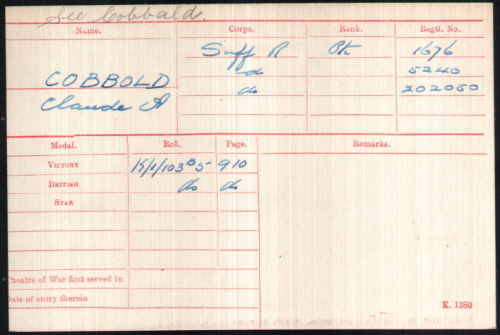 See Cobbald.
Name. Corps. Rank. Regtl. No.
Suff R Pte 1676
COBBOLD do 5240
Claude A do 202050
Medal. Roll. Page. Remarks.
VICTORY K/1/103 B5 910
BRITISH do do
STAR
Theatre of War first served in
Date of entry therein
K. 1380